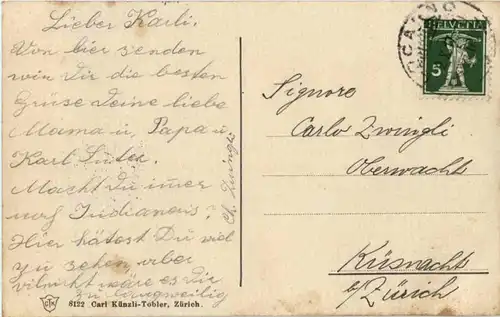 Lieber Karli.
Von hier senden
wir Dir die besten
Grüse Deine liebe
Mama u. Papa u.
Karl Suter.
Macht Du imer
noch Indianers?
Hier hätest Du viel
zu sehen aber
vileicht wäre es dir
zu langweilig
Ch. Zwingli
8122 Carl Künzli-Tobler, Zürich.
HELVETIA
5
Signore
Carlo Zwingli
Oberwacht
Küsnacht
b/Zürich